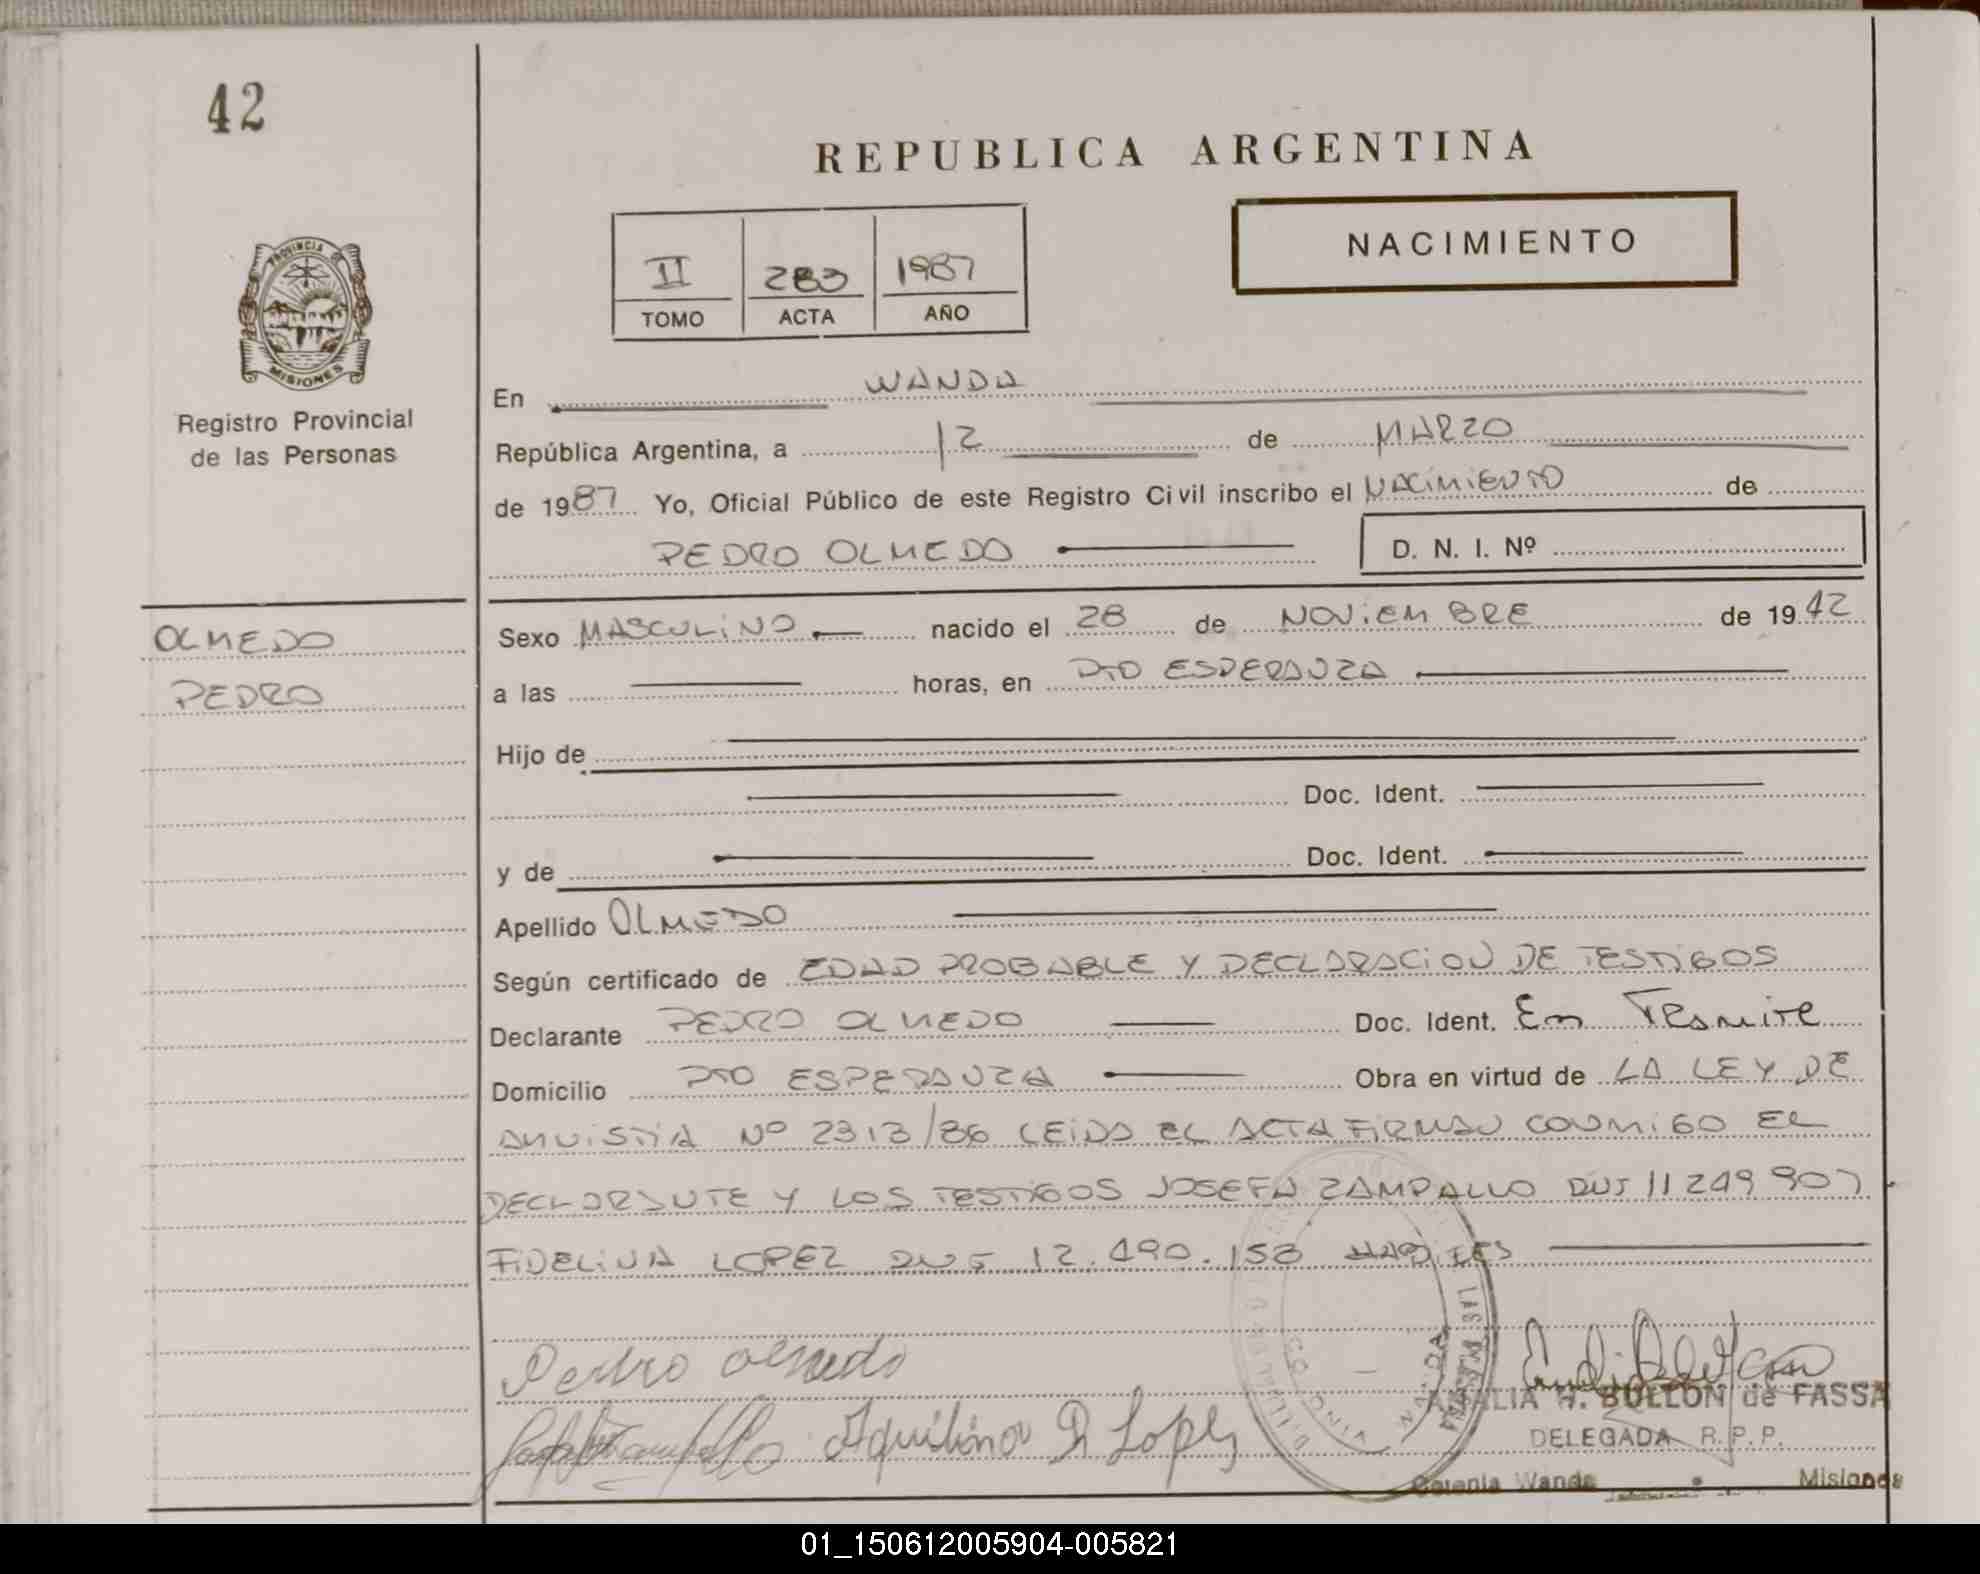 42
REPUBLICA ARGENTINA
NACIMIENTO
II 283 1987
TOMO ACTA AÑO
PROVINCIA
MISIONES
Registro Provincial
de las Personas
En WANDA
República Argentina, a 12 de MARZO
de 1987 Yo, Oficial Público de este Registro Civil inscribo el NACIMIENTO de
PEDRO OLMEDO D. N. I. Nº
OLMEDO
PEDRO
Sexo MASCULINO nacido el 28 de NOVIEMBRE de 1942
a las horas, en PTO ESPERANZA
Hijo de
Doc. Ident.
y de Doc. Ident.
Apellido OLMEDO
Según certificado de EDAD PROBABLE Y DECLARACION DE TESTIGOS
Declarante PEDRO OLMEDO Doc. Ident. En Tramite
Domicilio PTO ESPERANZA Obra en virtud de LA LEY DE
AMNISTIA Nº 2313/86 LEIDA EL ACTA FIRMAN CONMIGO EL
DECLARANTE Y LOS TESTIGOS JOSEFA ZAMPALLO DNI 11249907
FIDELINA LOPEZ DNI 12.490.158
Pedro Olmedo
Aquilino R Lopez
AMALIA H. BULLON de FASSA
DELEGADA R.P.P.
Colonia Wanda Misiones
WANDA
01_150612005904-005821